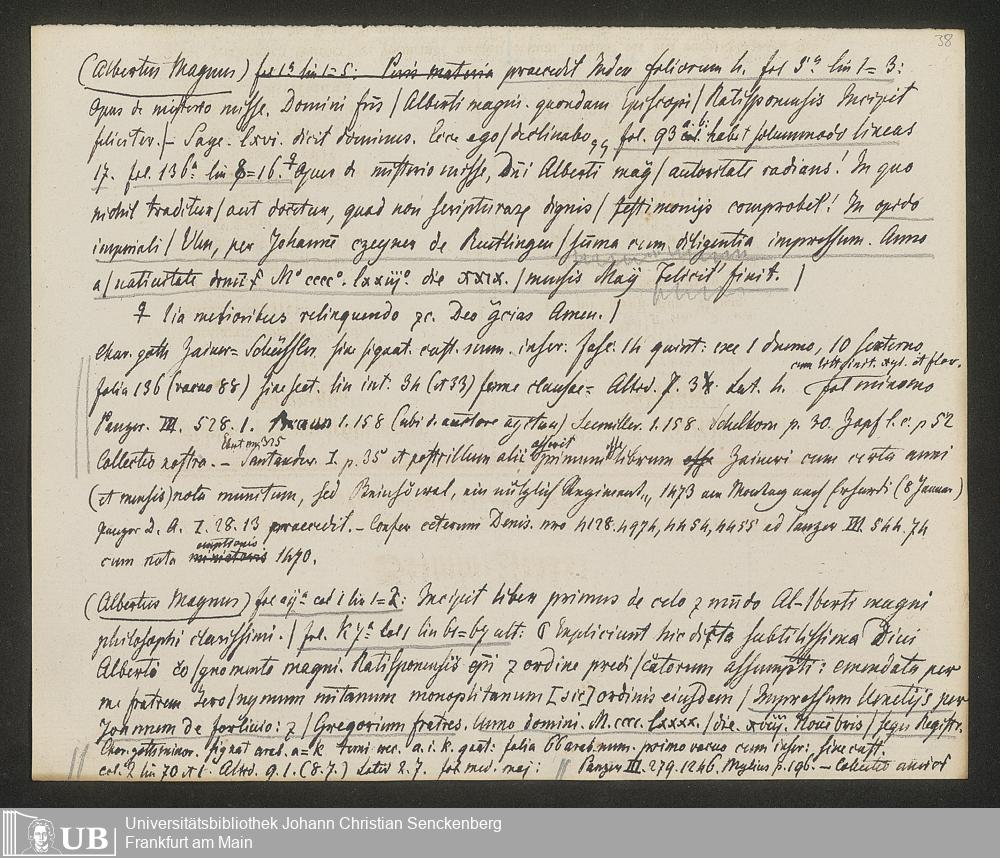 38
(Albertus Magnus) fol 1a lin 1=5: materia praecedit Index foliorum 4. fol 5a lin 1= 3:
Opus de misterio misse. Domini fris / Alberti magni. quondam Episcopi / Ratisponensis Incipit
feliciter. /- Saye. lxvi. dicit dominus. Ecce ego / declinabo fol. 93 habet solummodo lineas
17. fol. 136a lin 8=16. Opus de misterio misse, Dni Alberti mag / autoritate radians! In quo
nichil traditur / aut docetur, quod non scripturarum dignis / testimonijs comprobet! In opido
imperiali / Ulm, per Johanne czeyner de Reutlingen / suma cum diligentia impressum. Anno
a / nativitate domi Mo cccco. lxxiijo die xxix. / mensis Maij Felicit finit. /
lia melioribus relinquendo zc. Deo gcias Amen. /
Char. goth Zainer= Schüssler. sine signat. cust. num. inser. fasc. 14 quint: exc 1 duerno, 10 sexterno
cum litt. finit. xyl. et flor.
folia 136 (vacuo 88) lin int. 34 (et 33) ferme clausae= Altid. 7. 3 Lat. 4. fol minimo
Panzer. III. 528. 1. Braun 1. 158 (ubi d. auctore) Seemiller. 1. 158. Schelhorn p. 30. Zapf l. c. p 52
Ebert nr. 325
Collectio nostra. – Santander. I. p. 35 et post illum alii primum librum Zaineri cum certa anni
(et mensis) nota munitum, sed ein nützlich Regiment,, 1473 am Montag nach Erhardi (8 Januar)
Panzer D. A. I. 28. 13 praecedit. – Confer ceterum Denis. nro 4128. 4974, 4454, 4455 ad Panzer III. 544. 74
emptionis
cum nota miniatoris 1470.
(Albertus Magnus) fol aija col 1 lin 1=2: Incipit liber primus de celo z mudo Al=lberti magni
philosophi clarissimi. / fol. k 7a col 1 lin 61=67 ult: Expliciunt hic dicta subtilissima Divi
Alberto co / gnomento magni. Ratisponensis epi z ordine predi / catorum assumpti: emendata per
me fratrem Jero / nymum mtanum monopolitanum [sic] ordinis eiusdem / Impressum Venetijs per
Joannem de forliuio: z / Gregorium fratres. Anno domini. M. cccc. lxxxx. / die. xviij. Novebris / sequ Registr.
Char. goth minor. signat arab. a= k terni exc. a. i. k. quat: folia 66 arab. num. primo vacuo cum inser: sine cust.
col. 2 lin 70 et 1. Altid. 9. 1. (8. 7.) Latid 2. 7. fol med. maj: Panzer III. 279. 1246. p. 196. – Collectio
UB
Universitätsbibliothek Johann Christian Senckenberg
Frankfurt am Main